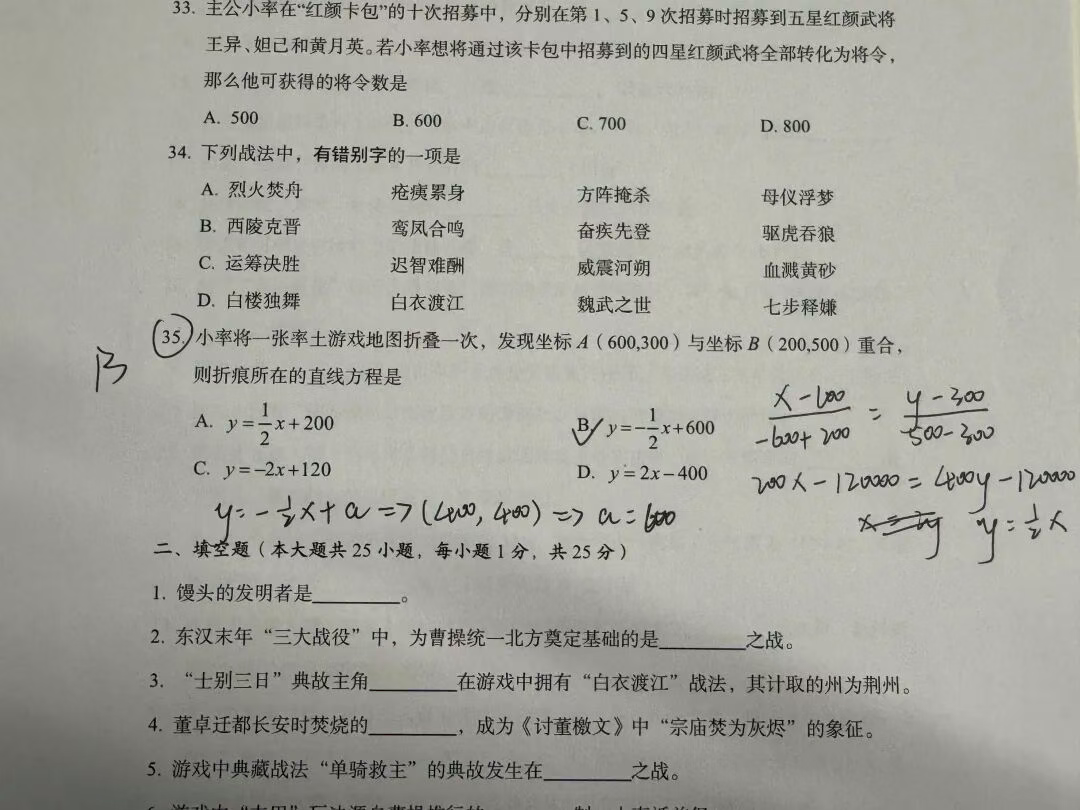 33. 主公小率在“红颜卡包”的十次招募中，分别在第 1、5、9 次招募时招募到五星红颜武将
王异、妲己和黄月英。若小率想将通过该卡包中招募到的四星红颜武将全部转化为将令，
那么他可获得的将令数是
A. 500 B. 600 C. 700 D. 800
34. 下列战法中，有错别字的一项是
A. 烈火焚舟 疮痍累身 方阵掩杀 母仪浮梦
B. 西陵克晋 鸾凤合鸣 奋疾先登 驱虎吞狼
C. 运筹决胜 迟智难酬 威震河朔 血溅黄砂
D. 白楼独舞 白衣渡江 魏武之世 七步释嫌
B
35. 小率将一张率土游戏地图折叠一次，发现坐标 A（600,300）与坐标 B（200,500）重合，
则折痕所在的直线方程是
A. y=1/2x+200 B. y=-1/2x+600
C. y=-2x+120 D. y=2x-400
x-600/-600+200 = y-300/500-300
200x-120000=400y-120000
y=1/2x
y=-1/2x+a=>(400,400)=>a=600
二、填空题（本大题共 25 小题，每小题 1 分，共 25 分）
1. 馒头的发明者是________。
2. 东汉末年“三大战役”中，为曹操统一北方奠定基础的是________之战。
3. “士别三日”典故主角________在游戏中拥有“白衣渡江”战法，其计取的州为荆州。
4. 董卓迁都长安时焚烧的________，成为《讨董檄文》中“宗庙焚为灰烬”的象征。
5. 游戏中典藏战法“单骑救主”的典故发生在________之战。